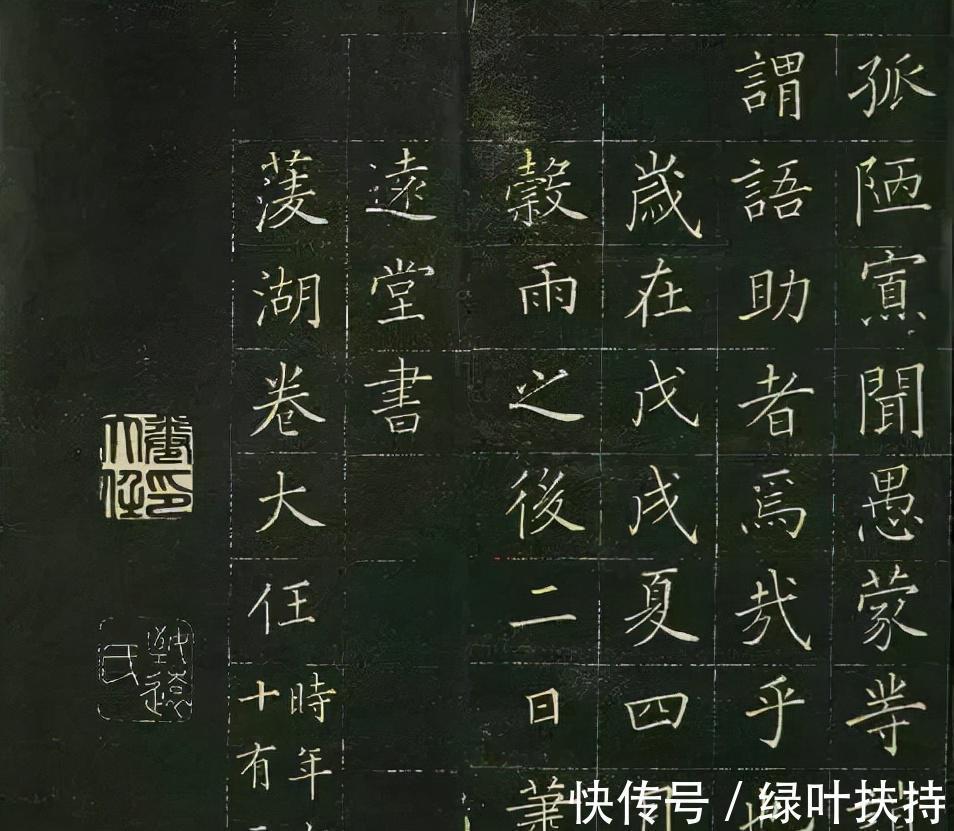 孤陋寡聞愚蒙等
謂語助者焉哉乎
歲在戊戌夏四
穀雨之後二日
遠堂書
蔆湖卷大任
時年
十有
快传号 / 绿叶扶持